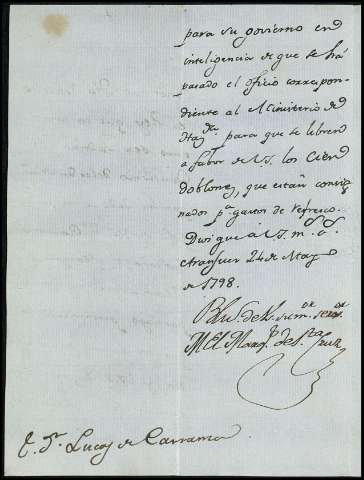 para su govierno en
inteligencia de que se ha
pasado el oficio correspon-
diente al Ministerio de
Haz.da para que se libren
a fabor de V.S. los Cien
doblones, que estan consig-
nados p.a gastos de Refresco.
Dios gue a V.S. m.s a.s
Aranjuez 24 de Mayo
de 1798.
El Marq.s de S.ta Cruz
S.r Lucas de Carranza